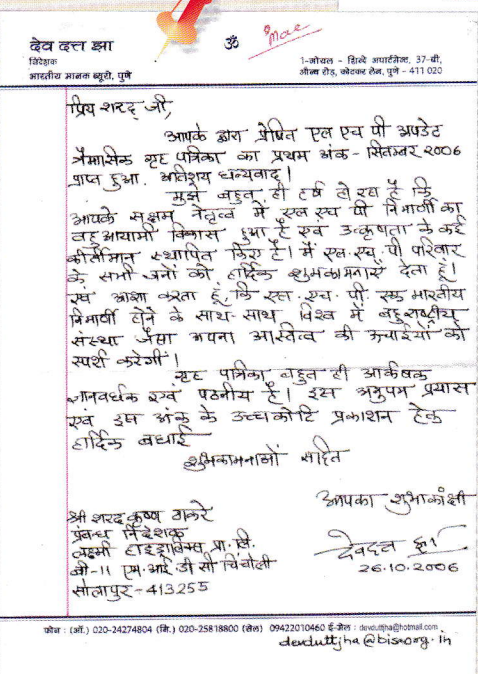 देव दत्त झा
निदेशक
भारतीय मानक ब्यूरो, पुणे
ॐ
1-गोयल - शिन्दे अपार्टमेन्ट, 37-बी,
औन्ध रोड, कोटकर लेन, पुणे - 411 020
प्रिय शरद जी,
आपके द्वारा प्रेषित एल एच पी अपडेट
त्रैमासिक गृह पत्रिका का प्रथम अंक - सितम्बर 2006
प्राप्त हुआ. अतिशय धन्यवाद।
मुझे बहुत ही हर्ष हो रहा है कि
आपके सक्षम नेतृत्व में एल एच पी निर्माणी का
बहु आयामी विकास हुआ है एवं उत्कृषता के कई
कीर्तीमान स्थापित किए है। मैं एल. एच. पी. परिवार
के सभी जनों को हार्दिक शुभकामनाएं देता हूँ।
एवं आशा करता हूँ, कि एल. एच. पी. एक भारतीय
निर्माणी होने के साथ-साथ विश्व में बहुराष्ट्रीय
संस्था जैसा अपना अस्तित्व की ऊचाईयों को
स्पर्श करेगी।
गृह पत्रिका बहुत ही आर्कषक
ज्ञानवर्धक एवं पठनीय है। इस अनुपम प्रयास
एवं इस अंक के उच्चकोटि प्रकाशन हेतु
हार्दिक बधाई
शुभकामनाओं सहित
आपका शुभाकांक्षी
श्री शरद कृष्ण ठाकरे
प्रबन्ध निदेशक
लक्ष्मी हाइड्रालिक्स प्रा. लि.
बी-11 एम. आई. डी सी चिंचोली
सोलापुर - 413255
देवदत्त झा
26.10.2006
फोन : (ऑ.) 020-24274804 (नि.) 020-25818800 (सेल) 09422010460 ई-मेल : devduttjha@hotmail.com
devduttjha@bis.org.in